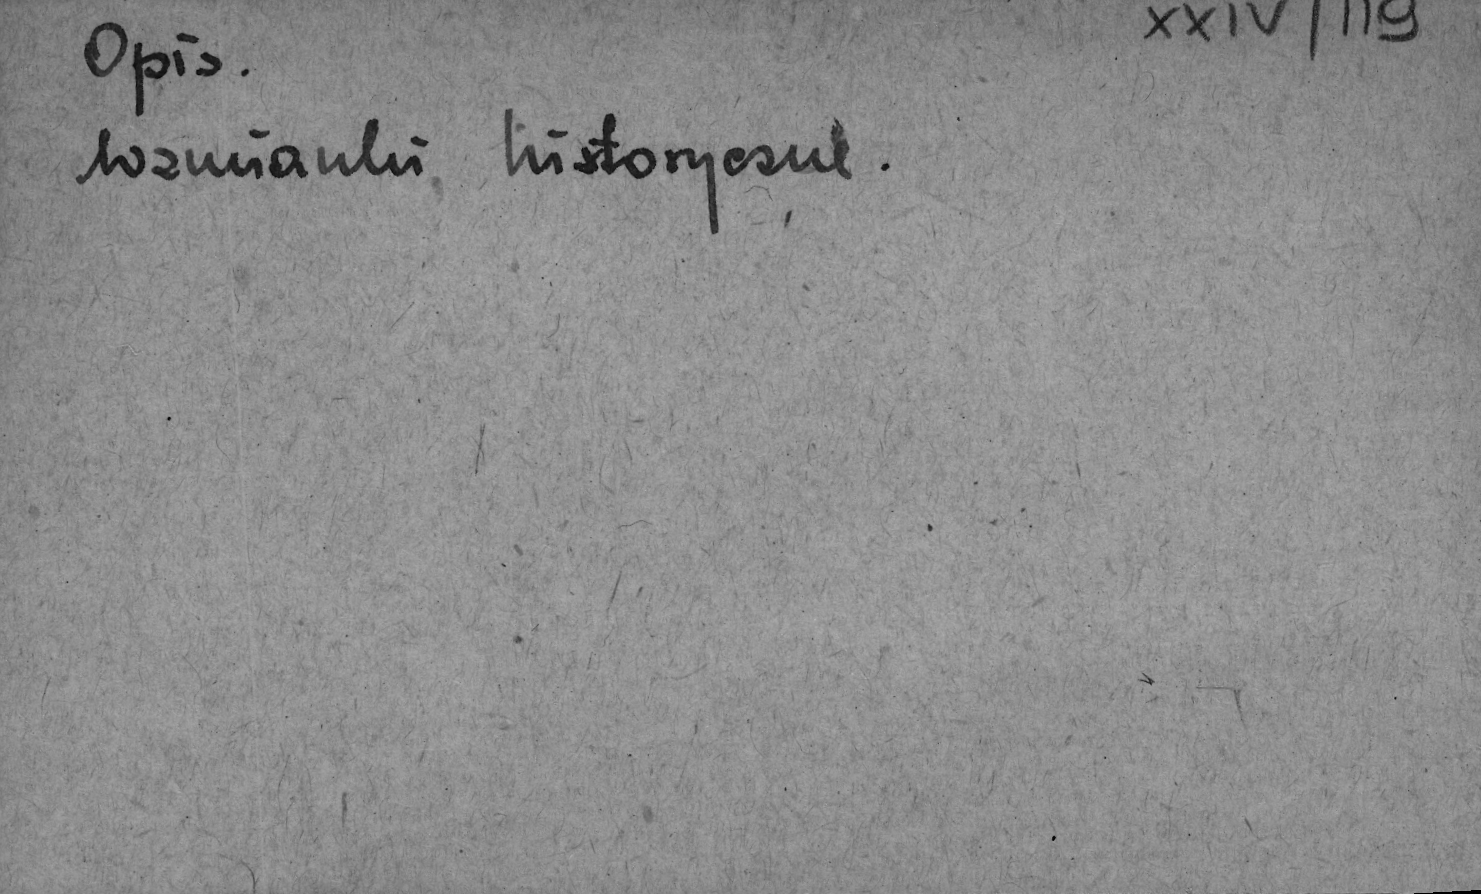 XXIV/119
Opis.
wzmianki historyczne.